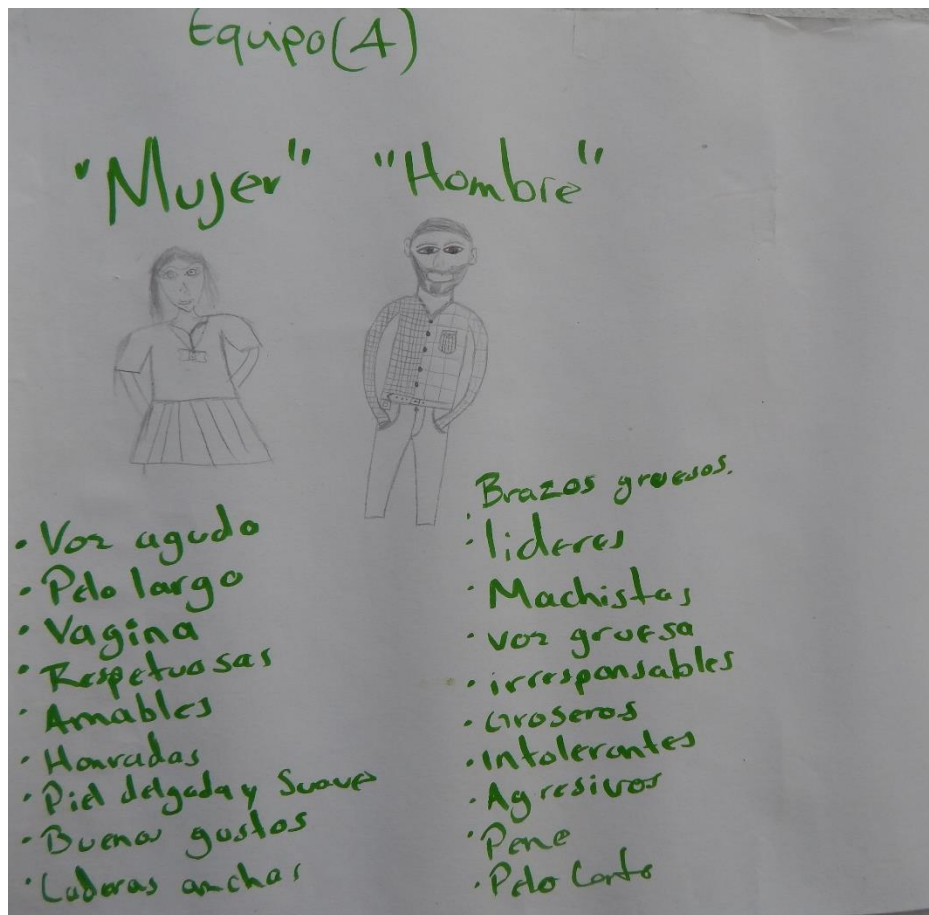 Equipo (A)
"Mujer" "Hombre"
• Voz agudo
• Pelo largo
• Vagina
• Respetuosas
• Amables
• Honradas
• Piel delgada y Suave
• Buenos gustos
• Caderas anchas
Brazos gruesos.
• lideres
• Machistas
• voz gruesa
• irresponsables
• Groseros
• Intolerantes
• Agresivos
• Pene
• Pelo Corto